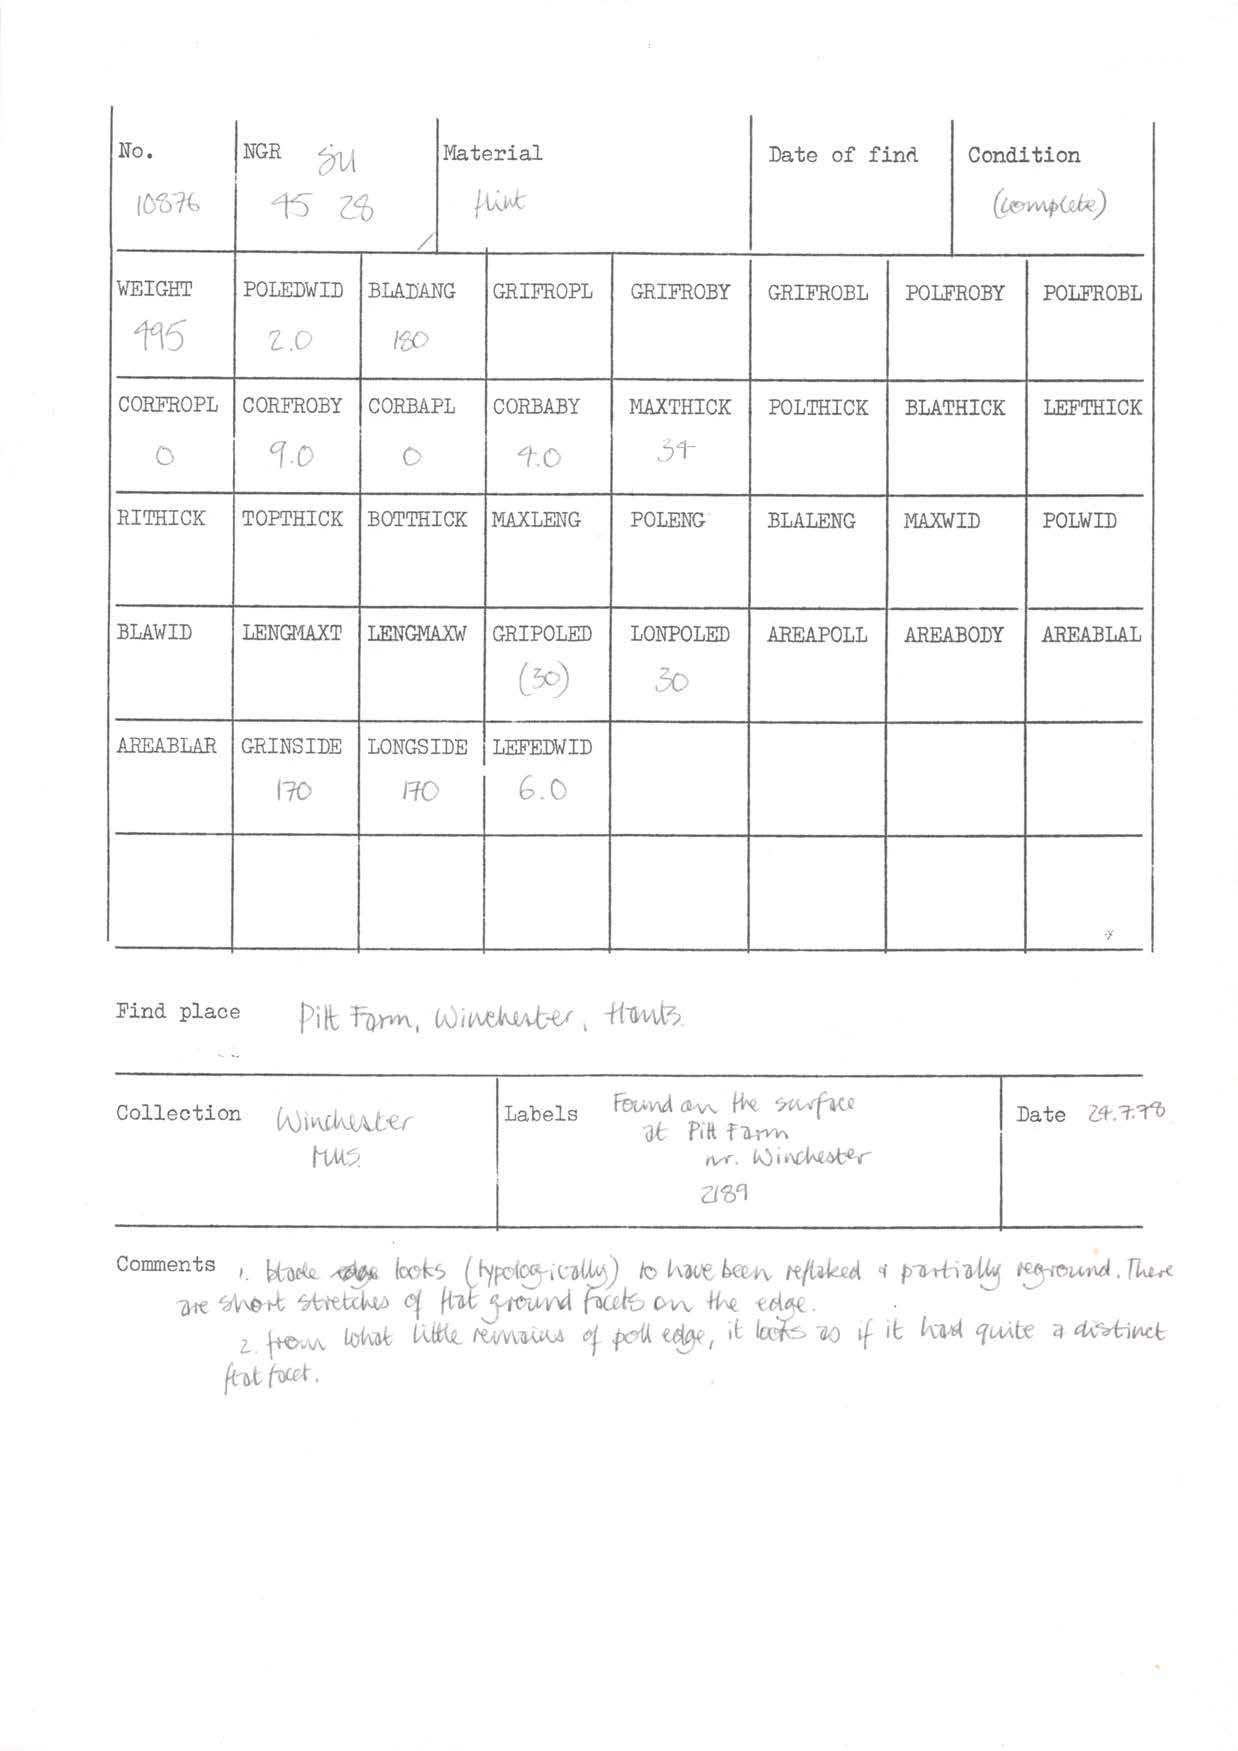 No. NGR SU Material Date of find Condition
10876 45 28 flint (complete)
WEIGHT POLEDWID BLADANG GRIFROPL GRIFROBY GRIFROBL POLFROBY POLFROBL
495 2.0 180
CORFROPL CORFROBY CORBAPL CORBABY MAXTHICK POLTHICK BLATHICK LEFTHICK
0 9.0 0 4.0 34
RITHICK TOPTHICK BOTTHICK MAXLENG POLENG BLALENG MAXWID POLWID
BLAWID LENGMAXT LENGMAXW GRIPOLED LONPOLED AREAPOLL AREABODY AREABLAL
(30) 30
AREABLAR GRINSIDE LONGSIDE LEFEDWID
170 170 6.0
Find place Pitt Farm, Winchester, Hants.
Collection Winchester
Mus.
Labels Found on the surface
at Pitt Farm
nr. Winchester
2189
Date 24.7.78
Comments 1. blade looks (typologically) to have been reflaked & partially reground. There
are short stretches of flat ground facets on the edge.
2. from what little remains of poll edge, it looks as if it had quite a distinct
flat facet.